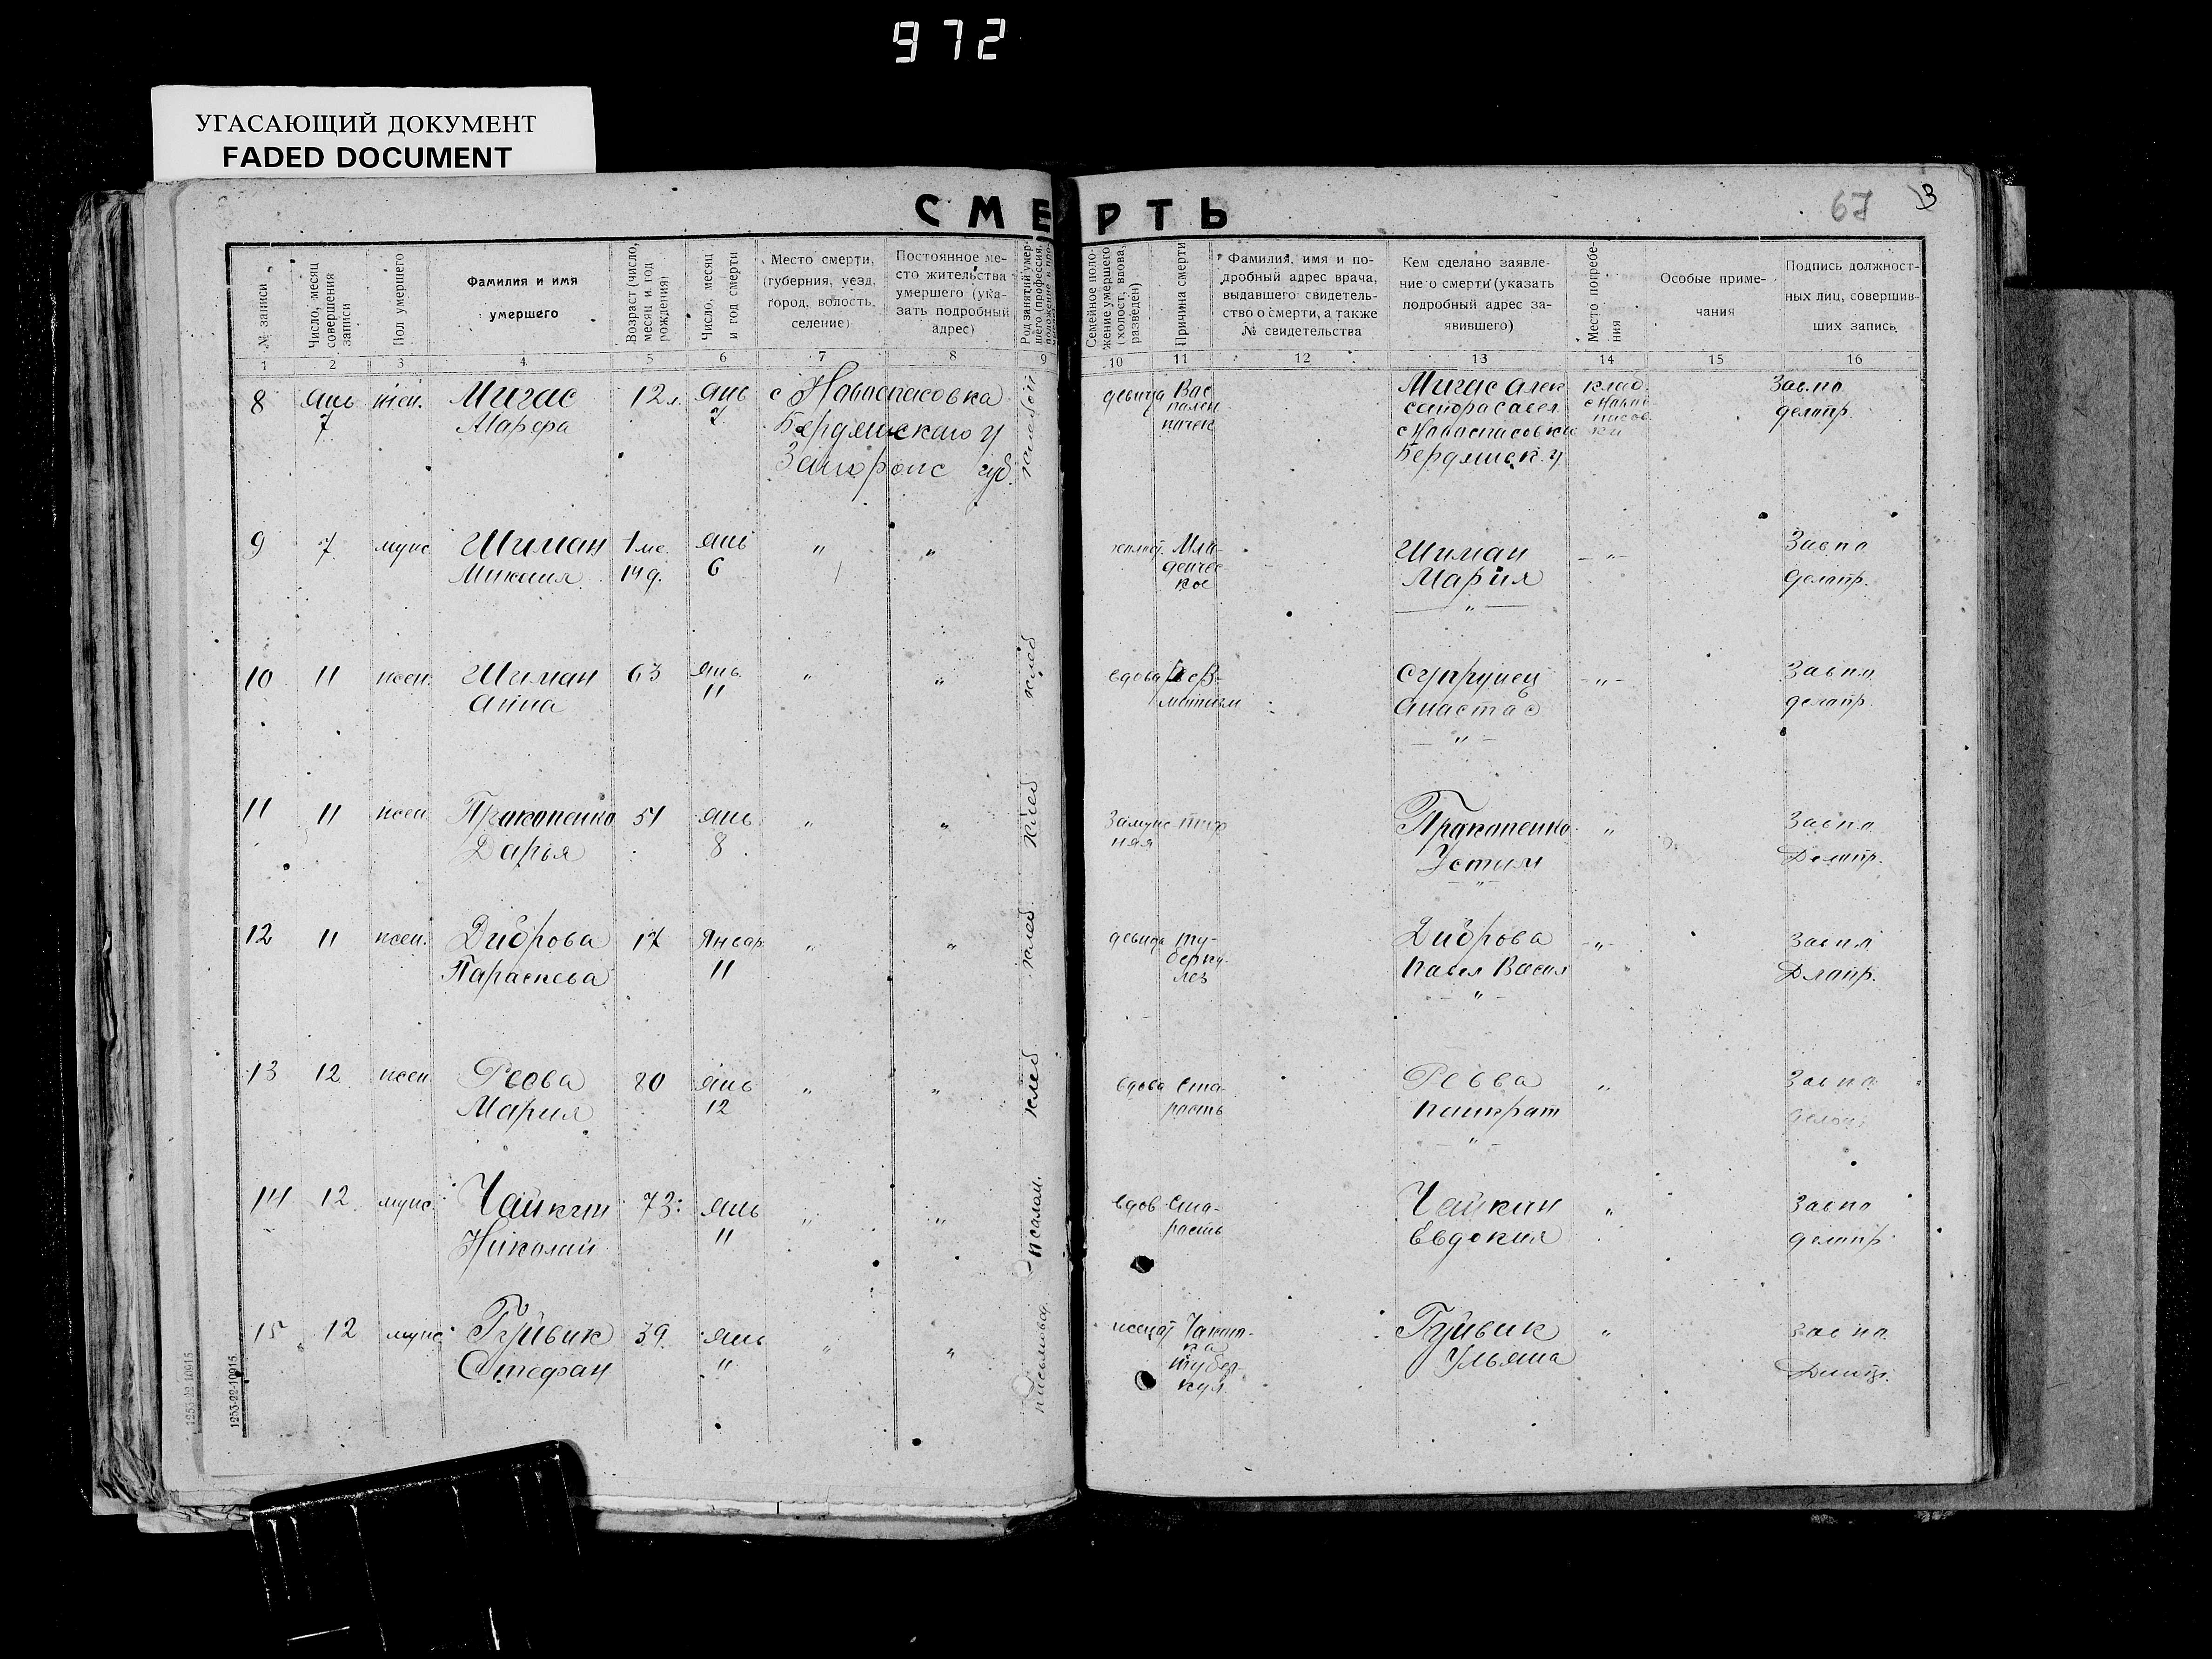 972
УГАСАЮЩИЙ ДОКУМЕНТ
FADED DOCUMENT
СМЕРТЬ
67
3
№ записи
Число, месяц совершения записи
Пол умершего
Фамилия и имя умершего
Возраст (число, месяц и год рождения)
Число, месяц и год смерти
Место смерти, (губерния, уезд, город, волость, селение)
Постоянное место жительства умершего (указать подробный адрес)
Род занятий умершего (профессия,
Семейное положение умершего (холост, вдова, разведен)
Причина смерти
Фамилия, имя и подробный адрес врача, выдавшего свидетельство о смерти, а также № свидетельства
Кем сделано заявление о смерти (указать подробный адрес заявившего)
Место погребения
Особые примечания
Подпись должностных лиц, совершивших запись.
1 2 3 4 5 6 7 8 9 10 11 12 13 14 15 16
8 янь 7 жен. Мигас Марфа 12 л. янь 7 с Новоспасовка Бердянскаго у Запорожс губ. девица Вос пален почек Мигас Алек сандра Савел с Новоспасовки Бердянск. у клад. Завпо делопр.
9 7 муж. Шиман Михаил 1 ме. 14 д. янь 6 " " холост. Мла- денчес кое Шиман Мария " - " - Завпо делопр.
10 11 жен. Шиман Анна 63 янь 11 " " хлеб вдова Супрунец Анастас " - " - Завпо делопр.
11 11 жен. Прокопенко Дарья 51 янь 8 " " хлеб замуж ная тиф Прокопенко Устим " " Завпо Делопр.
12 11 жен. Диброва Параскева 17 Январ 11 " " хлеб девица ту- берку- лез Диброва Павел Васил " - " - Завпо Длопр.
13 12 жен Ревва Мария 80 янь 12 " " хлеб вдова ста- рость Ревва Кондрат " " Завпо
14 12 муж. Чайкин Николай 73 янь 11 " " псалом. вдов ста- рость Чайкин Евдокия " Завпо делопр
15 12 муж Гуйвик Стефан 39. янь " " " письмовод. женат Чахот- ка тубер- кул. Гуйвик Ульяна " Завпо
1253-22-10915
1253-22-10915